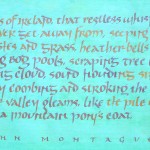 s of ireland that restless whisp
ever get away from, seeping
sles and grass, heather bells
ng bog pools, scraping tree l
ng cloud, sound hounding
y combing and stroking the
valley gleams, like the pile
a mountain pony's coat.
HN MONTAGUE